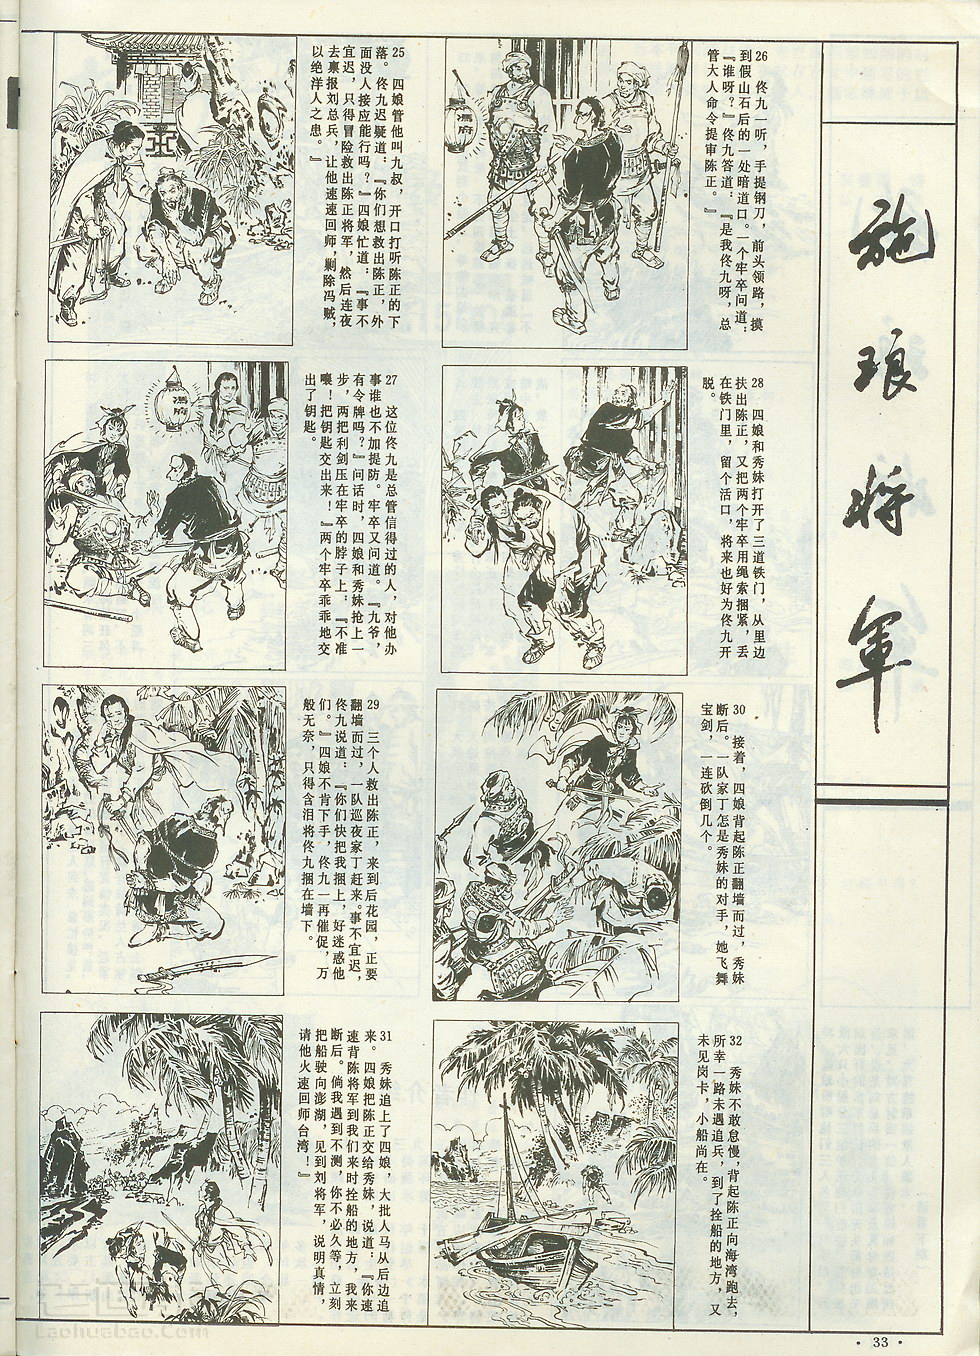 施琅将军
25 四娘管他叫九叔，开口打听陈正的下
落。佟九迟疑道：『你们想救出陈正，外
面没人接应能行吗？』四娘忙道：『事不
宜迟，只得冒险救出陈正将军，然后连夜
去禀报刘总兵，让他速速回师，剿除冯贼，
以绝洋人之患。』
冯府
26 佟九一听，手提钢刀，前头领路，摸
到假山石后的一处暗道口。一个牢卒问道：
『谁呀？』佟九答道：『是我佟九呀，总
管大人命令提审陈正。』
27 这位佟九是总管信得过的人，对他办
事谁也不加提防。牢卒又问道。『九爷，
有令牌吗？』问话时，四娘和秀妹抢上一
步，两把利剑压在牢卒的脖子上，『不准
嚷！把钥匙交出来！』两个牢卒乖乖地交
出了钥匙。
冯府
28 四娘和秀妹打开了三道铁门，从里边
扶出陈正，又把两个牢卒用绳索捆紧，丢
在铁门里，留个活口，将来也好为佟九开
脱。
29 三个人救出陈正，来到后花园，正要
翻墙而过，一队巡夜家丁赶来。事不宜迟，
佟九说道：『你们快把我捆上，好迷惑他
们。』四娘不肯下手，佟九一再催促，万
般无奈，只得含泪将佟九捆在墙下。
30 接着，四娘背起陈正翻墙而过，秀妹
断后。一队家丁怎是秀妹的对手，她飞舞
宝剑，一连砍倒几个。
31 秀妹追上了四娘，大批人马从后边追
来。四娘把陈正交给秀妹，说道：『你速
速背陈将军到我们来时拴船的地方，我来
断后。倘我遇到不测，你不必久等，立刻
把船驶向澎湖，见到刘将军，说明真情，
请他火速回师台湾！』
32 秀妹不敢怠慢，背起陈正向海湾跑去，
所幸一路未遇追兵，到了拴船的地方，又
未见岗卡，小船尚在。
Laohuabao.Com
·33·